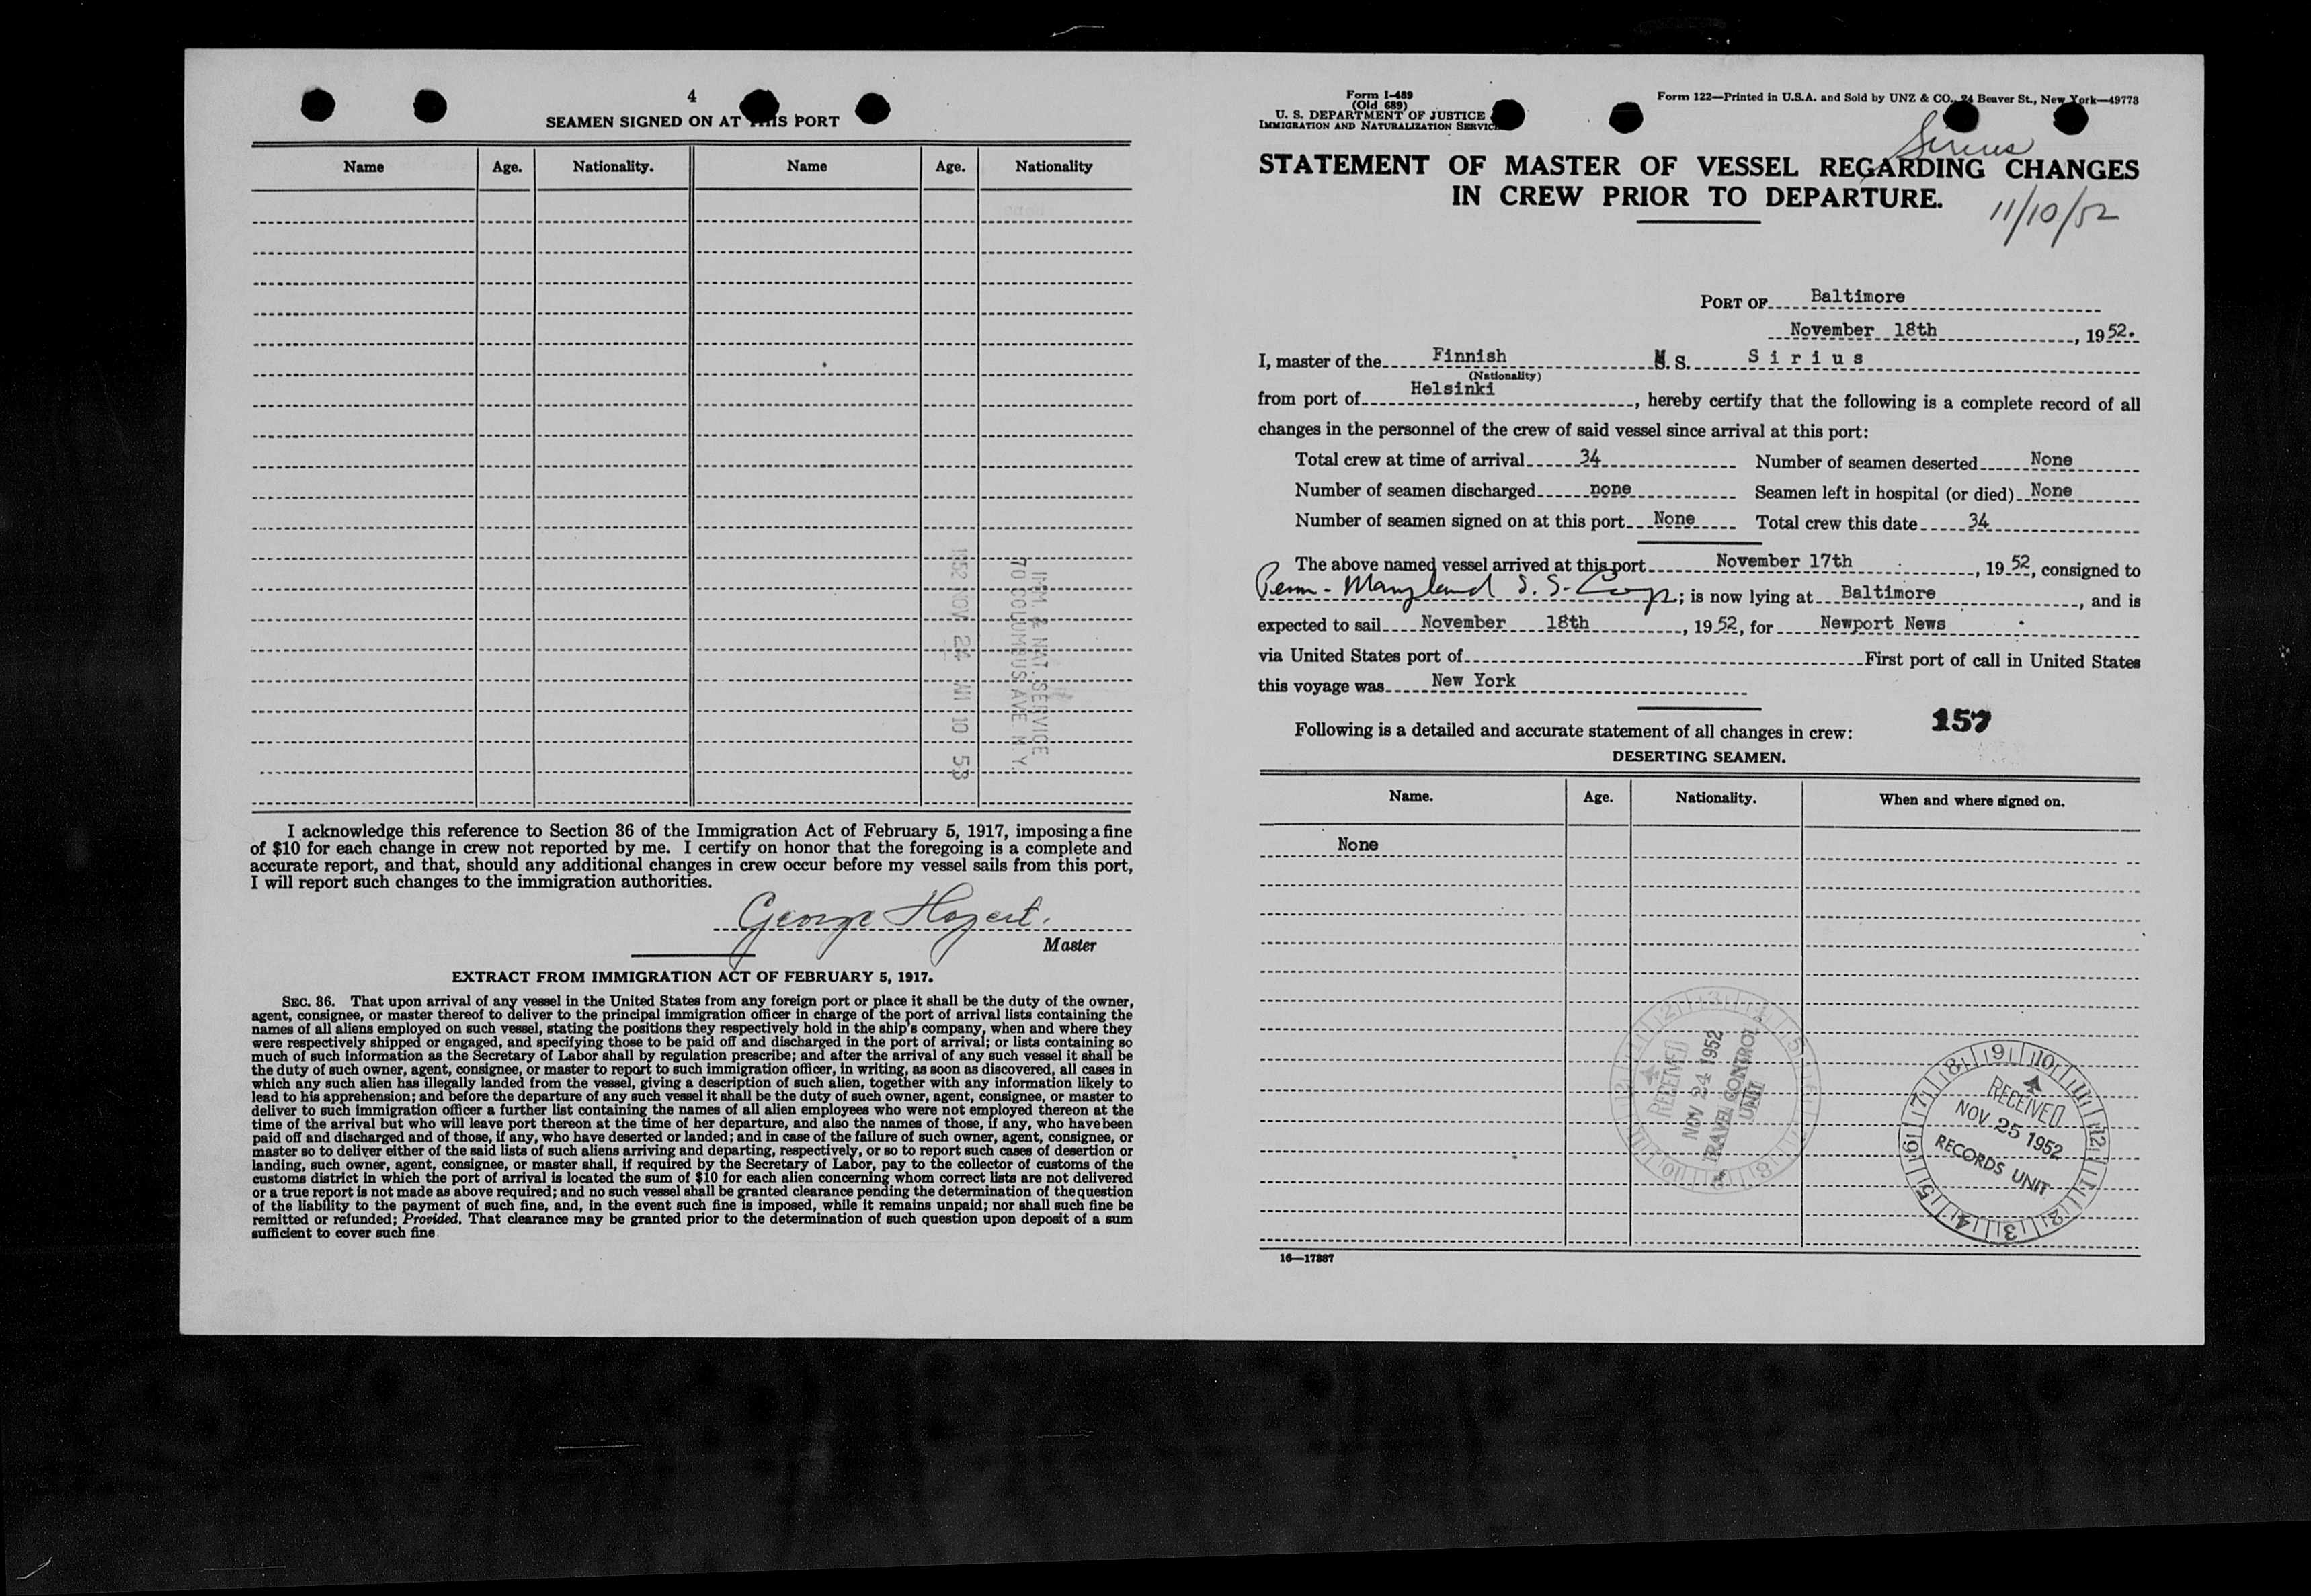 4
SEAMEN SIGNED ON AT THIS PORT
Name Age. Nationality. Name Age. Nationality
IMM. & NAT. SERVICE
70 COLUMBUS AVE N.Y.
1952 NOV 24 AM 10 53
I acknowledge this reference to Section 36 of the Immigration Act of February 5, 1917, imposing a fine
of $10 for each change in crew not reported by me. I certify on honor that the foregoing is a complete and
accurate report, and that, should any additional changes in crew occur before my vessel sails from this port,
I will report such changes to the immigration authorities.
George
Master
EXTRACT FROM IMMIGRATION ACT OF FEBRUARY 5, 1917.
SEC. 36. That upon arrival of any vessel in the United States from any foreign port or place it shall be the duty of the owner,
agent, consignee, or master thereof to deliver to the principal immigration officer in charge of the port of arrival lists containing the
names of all aliens employed on such vessel, stating the positions they respectively hold in the ship's company, when and where they
were respectively shipped or engaged, and specifying those to be paid off and discharged in the port of arrival; or lists containing so
much of such information as the Secretary of Labor shall by regulation prescribe; and after the arrival of any such vessel it shall be
the duty of such owner, agent, consignee, or master to report to such immigration officer, in writing, as soon as discovered, all cases in
which any such alien has illegally landed from the vessel, giving a description of such alien, together with any information likely to
lead to his apprehension; and before the departure of any such vessel it shall be the duty of such owner, agent, consignee, or master to
deliver to such immigration officer a further list containing the names of all alien employees who were not employed thereon at the
time of the arrival but who will leave port thereon at the time of her departure, and also the names of those, if any, who have been
paid off and discharged and of those, if any, who have deserted or landed; and in case of the failure of such owner, agent, consignee, or
master so to deliver either of the said lists of such aliens arriving and departing, respectively, or so to report such cases of desertion or
landing, such owner, agent, consignee, or master shall, if required by the Secretary of Labor, pay to the collector of customs of the
customs district in which the port of arrival is located the sum of $10 for each alien concerning whom correct lists are not delivered
or a true report is not made as above required; and no such vessel shall be granted clearance pending the determination of the question
of the liability to the payment of such fine, and, in the event such fine is imposed, while it remains unpaid; nor shall such fine be
remitted or refunded; Provided, That clearance may be granted prior to the determination of such question upon deposit of a sum
sufficient to cover such fine.
Form I-489
(Old 689)
U. S. DEPARTMENT OF JUSTICE
IMMIGRATION AND NATURALIZATION SERVICE
Form 122—Printed in U.S.A. and Sold by UNZ & CO., 24 Beaver St., New York—49773
Sirius
STATEMENT OF MASTER OF VESSEL REGARDING CHANGES
IN CREW PRIOR TO DEPARTURE.
11/10/52
PORT OF Baltimore
November 18th, 1952.
I, master of the Finnish M. S. Sirius
(Nationality)
from port of Helsinki, hereby certify that the following is a complete record of all
changes in the personnel of the crew of said vessel since arrival at this port:
Total crew at time of arrival 34 Number of seamen deserted None
Number of seamen discharged none Seamen left in hospital (or died) None
Number of seamen signed on at this port None Total crew this date 34
The above named vessel arrived at this port November 17th, 1952, consigned to
Penn-Maryland S. S. Corp; is now lying at Baltimore, and is
expected to sail November 18th, 1952, for Newport News
via United States port of First port of call in United States
this voyage was New York
Following is a detailed and accurate statement of all changes in crew:
157
DESERTING SEAMEN.
Name. Age. Nationality. When and where signed on.
None
RECEIVED
NOV 24 1952
TRAVEL CONTROL
UNIT
RECEIVED
NOV 25 1952
RECORDS UNIT
16—17887